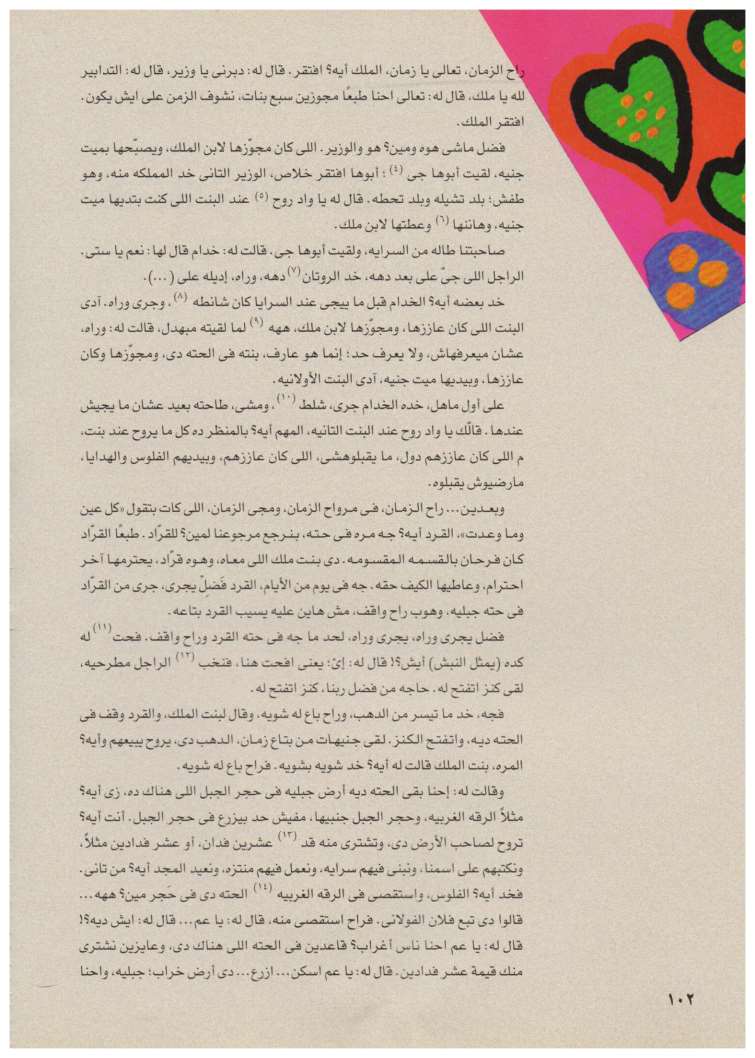 راح الزمان، تعالى يا زمان، الملك أيه؟ افتقر. قال له: دبرنى يا وزير، قال له: التدابير
لله يا ملك، قال له: تعالى احنا طبعًا مجوزين سبع بنات، نشوف الزمن على ايش يكون.
افتقر الملك.
فضل ماشى هوه ومين؟ هو والوزير. اللى كان مجوّزها لابن الملك، ويصبّحها بميت
جنيه، لقيت أبوها جى (٤) ؛ أبوها افتقر خلاص، الوزير التانى خد المملكه منه، وهو
طفش؛ بلد تشيله وبلد تحطه. قال له يا واد روح (٥) عند البنت اللى كنت بتديها ميت
جنيه، وهاننها (٦) وعطتها لابن ملك.
صاحبتنا طاله من السرايه، ولقيت أبوها جى. قالت له: خدام قال لها: نعم يا ستى.
الراجل اللى جىّ على بعد دهه، خد الروتان (٧) دهه، وراه، إديله على (...).
خد بعضه أيه؟ الخدام قبل ما ييجى عند السرايا كان شانطه (٨) ، وجرى وراه. آدى
البنت اللى كان عاززها، ومجوّزها لابن ملك، ههه (٩) لما لقيته مبهدل، قالت له: وراه،
عشان ميعرفهاش، ولا يعرف حد؛ إنما هو عارف، بنته فى الحته دى، ومجوّزها وكان
عاززها، وبيديها ميت جنيه، آدى البنت الأولانيه.
على أول ماهل، خده الخدام جرى، شلط (١٠) ، ومشى، طاحته بعيد عشان ما يجيش
عندها. قالّك يا واد روح عند البنت التانيه، المهم أيه؟ بالمنظر ده كل ما يروح عند بنت،
م اللى كان عاززهم دول، ما يقبلوهشى، اللى كان عاززهم، وبيديهم الفلوس والهدايا،
مارضيوش يقبلوه.
وبعـديـن... راح الزمان، فى مرواح الزمان، ومجى الزمان، اللى كات بتقول «كل عين
وما وعدت»، القرد أيه؟ جه مره فى حته، بنرجع مرجوعنا لمين؟ للقرّاد. طبعًا القرّاد
كان فرحان بالقسمه المقسومه. دى بنت ملك اللى معاه، وهوه قرّاد، يحترمها آخر
احترام، وعاطيها الكيف حقه. جه فى يوم من الأيام، القرد فَضلّ يجرى، جرى من القرّاد
فى حته جبليه، وهوب راح واقف، مش هاين عليه يسيب القرد بتاعه.
فضل يجرى وراه، يجرى وراه، لحد ما جه فى حته القرد وراح واقف. فحت (١١) له
كده (يمثل النبش) أيش؟! قال له: إىْ؛ يعنى افحت هنا، فنخب (١٢) الراجل مطرحيه،
لقى كنز اتفتح له. حاجه من فضل ربنا، كنز اتفتح له.
فجه، خد ما تيسر من الدهب، وراح باع له شويه. وقال لبنت الملك، والقرد وقف فى
الحته ديه، واتفتح الكنز. لقى جنيهات من بتاع زمان، الدهب دى، يروح يبيعهم وأيه؟
المره، بنت الملك قالت له أيه؟ خد شويه بشويه. فراح باع له شويه.
وقالت له: إحنا بقى الحته ديه أرض جبليه فى حجر الجبل اللى هناك ده، زى أيه؟
مثلاً الرقه الغربيه، وحجر الجبل جنبيها، مفيش حد بيزرع فى حجر الجبل. أنت أيه؟
تروح لصاحب الأرض دى، وتشترى منه قد (١٣) عشرين فدان، أو عشر فدادين مثلاً،
ونكتبهم على اسمنا، ونبنى فيهم سرايه، ونعمل فيهم منتزه، ونعيد المجد أيه؟ من تانى.
فخد أيه؟ الفلوس، واستقصى فى الرقه الغربيه (١٤) الحته دى فى حَجر مين؟ ههه...
قالوا دى تبع فلان الفولانى. فراح استقصى منه، قال له: يا عم... قال له: ايش ديه؟!
قال له: يا عم احنا ناس أغراب؟ قاعدين فى الحته اللى هناك دى، وعايزين نشترى
منك قيمة عشر فدادين. قال له: يا عم اسكن... ازرع... دى أرض خراب؛ جبليه، واحنا
١٠٢